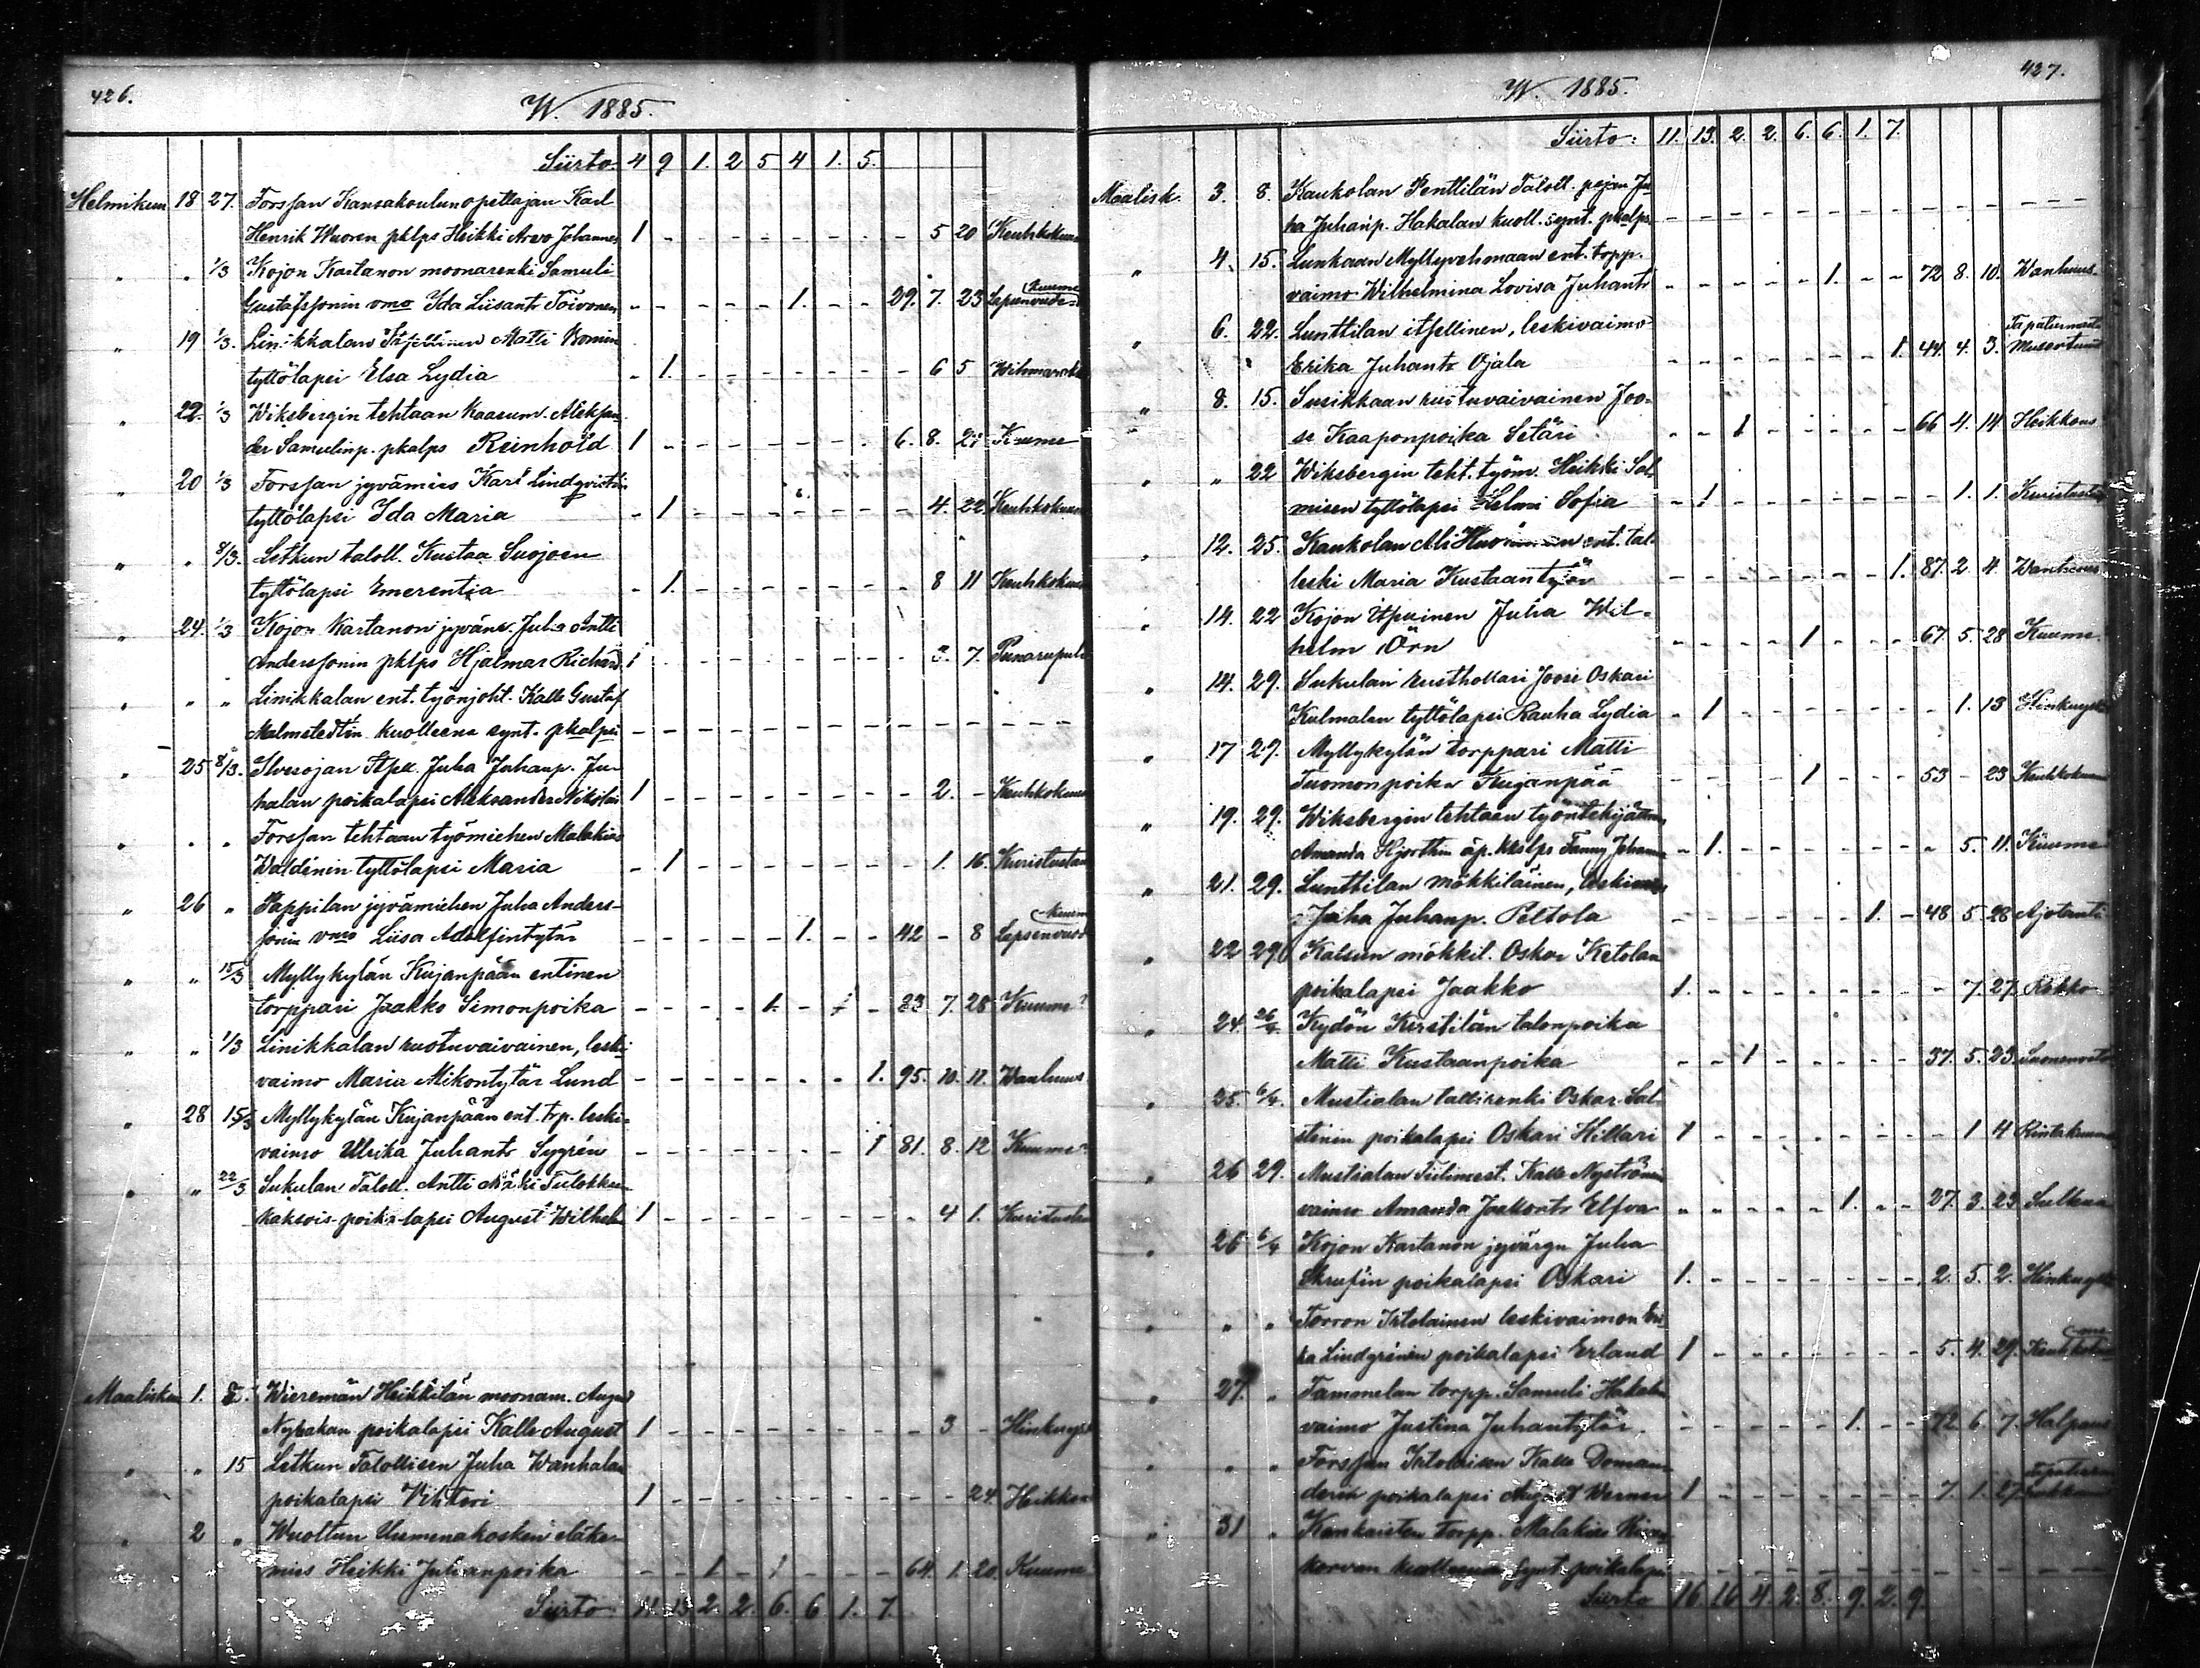 426.
W. 1885.
Siirto 4 9 1. 2 5 4 1. 5.
Helmikuu 18 27. Forssan Kansakoulunopettajan Karl
Henrik Wuoren pklps Heikki Arvo Johannes 1 - - - - - - - - 5 20
" " 1/3 Kojon Kartanon moonarenki Samuli
Gustafssonin vmo Ida Liisantr Toivonen - - - - - 1. - - 29. 7. 23 Kuume
" 19 1/3. Linikkalan Itsellinen Matti
tyttölapsi Elsa Lydia - 1. - - - - - - - 6 5
" 22. 1/3 Wiksbergin tehtaan Aleksan
der Samulinp. pkalps Reinhold 1 - - - - - - - 6. 8. Kuume
" 20 1/3 Forssan jyvämies Karl Lindqvistin
tyttölapsi Ida Maria - 1 - - - - - - - 4. 22. Keuhkokuume
" . 8/3. Letkun taloll. Kustaa Suojoen
tyttölapsi Emerentia - 1. - - - - - - - 8 11 Keuhkokuume
" 24. 1/3 Kojon Kartanon jyväm. Juho Antti
Anderssonin pklps Hjalmar Richard 1 - - - - - - - - 3. 7.
" " " Linikkalan ent. työnjoht. Kalle Gustaf
Malmstedtin kuolleena synt. pkalpsi - - - - - - - - - - -
" 25 8/3. Juha Juhanp. Ju-
halan poikalapsi Aleksander Nikolai 1 - - - - - - - - 2. - Keuhkokuume
" . . Forssan tehtaan työmiehen Malakias
Waldénin tyttölapsi Maria - 1 - - - - - - - 1. 16. Kuristustau
" 26 " Pappilan jyvämiehen Juha Anders-
sonin vmo Liisa Adolfintytär - - - - - 1. - - 42 - 8 Lapsenvuode
" " 15/3 Myllykylän Kujanpään entinen
torppari Jaakko Simonpoika - - - - 1. - - 7. 28 Kuume?
" " 1/3 Linikkalan ruotuvaivainen, leski-
vaimo Maria Mikontytär Lund - - - - - - - 1. 95. 10. 11. Wanhuus
" 28 15/3 Myllykylän Kujanpään ent. trp. leski-
vaimo Ulrika Juhantr Sygrén - - - - - - - 1 81. 8. 12 Kuume?
" " 22/3 Sukulan Taloll. Antti
kaksois-poika-lapsi August Wilhelm 1 - - - - - - - - 4 1.
Maalisku 1. 8. Wieremän Heikkilän moonam. August
poikalapsi Kalle August 1 - - - - - - - - 3 - Hinkuysk
" " 15 Letkun Talollisen Juha Wanhalan
poikalapsi Vihtori 1 - - - - - - - - - 24. Heikkous
" 2 " eläke-
mies Heikki Juhanpoika - - 1 - 1 - - - 64. 1. 20. Kuume
Siirto 11. 13 2. 2. 6. 6 1. 7.
427.
W. 1885.
Siirto: 11. 13. 2. 2. 6. 6. 1. 7.
Maalisk. 3. 8. Kaukolan Penttilän Taloll. pojan Ju-
ha Juhanp. Hakalan kuoll. synt. pkalps - - - - - - - - - - -
" 4. 15. Lunkaan ent. torpp.
vaimo Wilhelmina Lovisa Juhantr - - - - - 1. - - 72 8. 10. Wanhuus
" 6. 22. Lunttilan itsellinen, leskivaimo
Erika Juhantr Ojala - - - - - - - 1. 44. 4. 3.
" 8. 15. Susikkaan ruotuvaivainen Joo-
se Kaaponpoika Setäri - - 1 - - - - - 66 4. 14. Heikkous
" " 22 Wiksbergin teht. työm. Heikki Sal-
misen tyttölapsi Selma Sofia - 1 - - - - - - - 1. 1. Kuristustau
" 12. 25. Kaukolan ent. tal.
leski Maria Kustaantytär - - - - - - - 1. 87. 2. 4. Wanhuus
" 14. 22 Kojon Juha Wil-
helm Örn - - - - 1 - - - 67. 5. 28 Kuume.
" 14. 29. Sukulan rusthollari Joose Oskari
Kulmalan tyttölapsi Rauha Lydia - 1 - - - - - - - 1. 13 Hinkuysk
" 17 29. Myllykylän torppari Matti
Tuomonpoika Kujanpää - - - - 1 - - - 53 - 23 Keuhkokuume
" 19. 29. Wiksbergin tehtaan työntekijättären
Amanda Hjorthin äp. Fanny Johanna - 1. - - - - - - - 5. 11. Kuume
" 21. 29. Lunttilan mökkiläinen, leskimies
Juha Juhanp. Peltola - - - - - - 1. - 48 5 28 Ajotauti
" 22 29. Kaisun mökkil. Oskar Ketolan
poikalapsi Jaakko 1. - - - - - - - - 7. 27. Rokko
" 24. 26/4. Kydön Kerstilän talonpoika
Matti Kustaanpoika - - 1 - - - - - 57. 5. 23. Suonenveto
" 25. 6/4. Mustialan tallirenki Oskar Sal-
stenin poikalapsi Oskari Hillari 1 - - - - - - - - 1 4
" 26 29. Mustialan Kalle Nyströmin
vaimo Amanda Jaakontr Elfva - - - - - 1. - - 27. 3. 23
" 26 6/4 Kojon Kartanon Juha
poikalapsi Oskari 1. - - - - - - - 2. 5. 2. Hinkuysk
" " " Torron leskivaimon Eri-
ka Lindgrénin poikalapsi Erland 1 - - - - - - - 5. 4. 29.
" 27. " Tammelan torpp. Samuli Hakala
vaimo Justina Juhantytär - - - - - 1. - - 72 6. 7. Halpaus
" " " Forssan Itsellisen Kalle Doman-
derin poikalapsi August Werner 1 - - - - - - - 7. 1. 27.
" 31 " Kankaisten torpp. Malakias
korvan kuolleena synt. poikalapsi - - - - - - - - - - -
Siirto 16. 16. 4. 2. 8. 9. 2. 9.